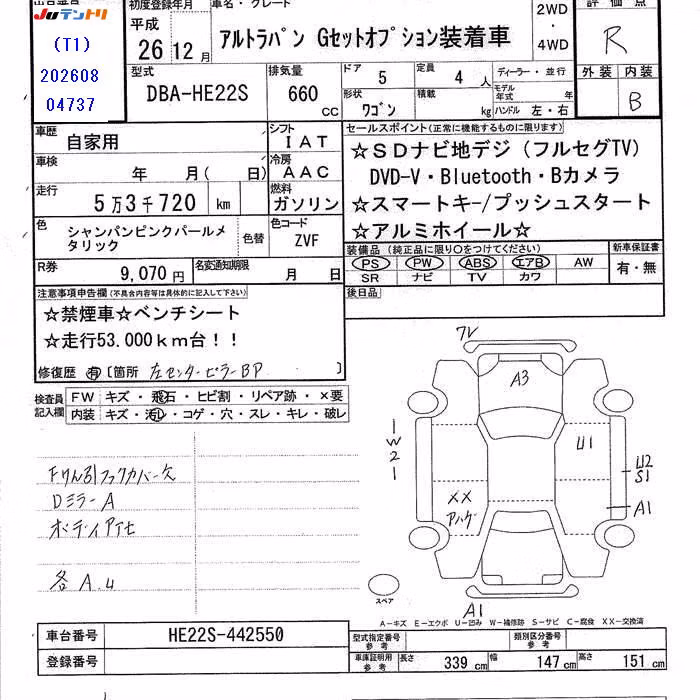 Juテントリ
(T1)
202608
04737
初度登録年月
平成
26 12 月
車名・グレード
アルトラパン Gセットオプション装着車
2WD
・
4WD
評価点
R
外装 内装
B
型式
DBA-HE22S
排気量
660
cc
ドア 5
定員 4 人
形状 ワゴン
積載 kg
ディーラー・並行
モデル年式 年
ハンドル 左・右
車歴 自家用
シフト IAT
車検 年 月(日)
冷房 AAC
走行 5万3千720 km
燃料 ガソリン
色 シャンパンピンクパールメタリック
色替
色コード ZVF
R券 9,070円
名変通知期限 月 日
セールスポイント(正常に機能するものに限ります)
☆SDナビ地デジ(フルセグTV)
DVD-V・Bluetooth・Bカメラ
☆スマートキ-/プッシュスタート
☆アルミホイール☆
装備品(純正品に限り○をつけてください)
PS PW ABS エアB AW
SR ナビ TV カワ
新車保証書
有・無
後日品
注意事項申告欄(不具合内容等は具体的に記入して下さい)
☆禁煙車☆ベンチシート
☆走行53.000km台!!
修復歴 有 [箇所 左センターピラーBP ]
検査員記入欄
FW キズ・飛石・ヒビ割・リペア跡・×要
内装 キズ・汚れ・コゲ・穴・スレ・キレ・破レ
DミラーA
各A.U
フレ
A3
W2
U1
U2
S1
XX
A1
スペア
A1
A-キズ E-エクボ U-凹み W-補修跡 S-サビ C-腐食 XX-交換済
車台番号 HE22S-442550
登録番号
型式指定番号 参考
類別区分番号 参考
車庫証明用 参考
長さ 339 cm 幅 147 cm 高さ 151 cm